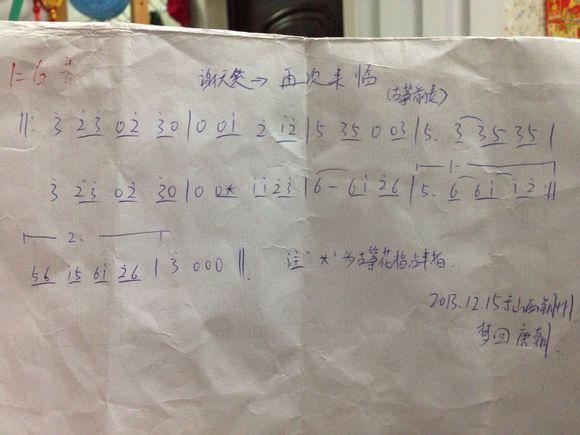 1=G 4/4
谢天笑→再次来临
(古筝前奏)
‖: 3̇ 2̇3̇ 02̇ 3̇0 | 0 01̇ 2̇ 1̇2̇ | 5 35 0 03 | 5. 3 35 35 |
1.
3̇ 2̇3̇ 02̇ 3̇0 | 0 0* 1̇1̇2̇3̇ | 6 - 61̇ 2̇6 | 5. 6 61̇ 1̇2̇ :‖
2.
56 1̇5 61̇ 2̇6 | 3̇ 0 0 0 ‖
注"*"为古筝花指,占半拍
2013.12.15于山西朔州
梦回唐朝